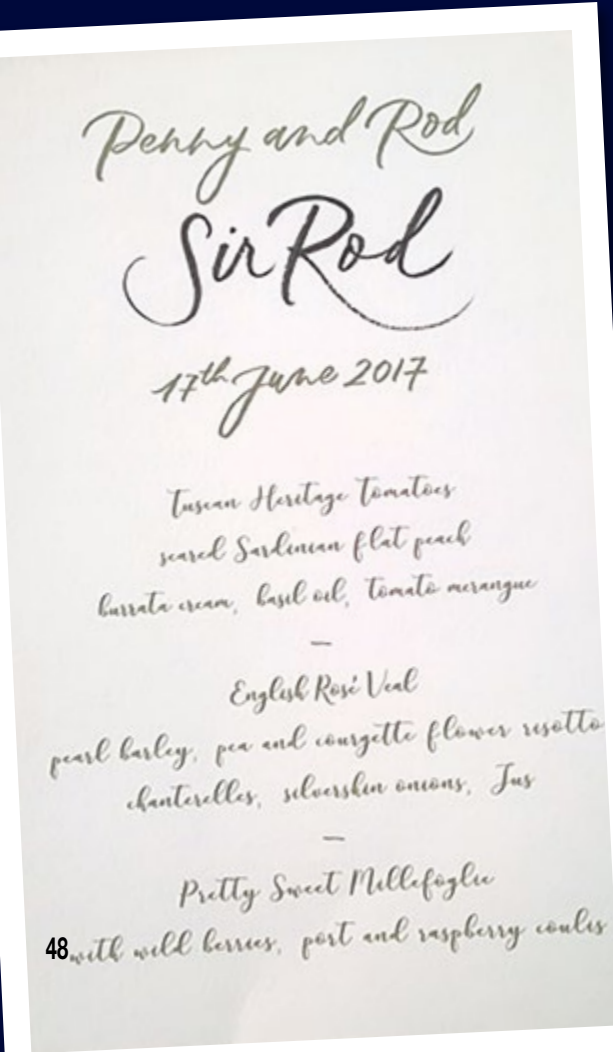 Penny and Rod
Sir Rod
17th June 2017
Tuscan Heritage Tomatoes
seared Sardinian flat peach
burrata cream, basil oil, tomato merangue
—
English Rosé Veal
pearl barley, pea and courgette flower risotto
chanterelles, silverskin onions, Jus
—
Pretty Sweet Millefoglie
48 with wild berries, port and raspberry coulis